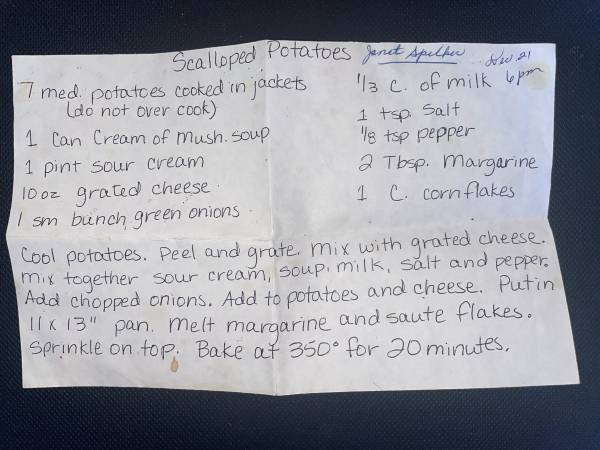 Scalloped Potatoes Janet Spilker Nov. 21
6 pm
7 med. potatoes cooked in jackets
(do not over cook)
1 Can Cream of Mush. soup
1 pint sour cream
10 oz grated cheese
1 sm bunch green onions
1/3 C. of milk
1 tsp. Salt
1/8 tsp pepper
2 Tbsp. Margarine
1 C. cornflakes
Cool potatoes. Peel and grate. Mix with grated cheese.
Mix together sour cream, soup, milk, salt and pepper.
Add chopped onions. Add to potatoes and cheese. Put in
11 x 13" pan. Melt margarine and saute flakes.
Sprinkle on top. Bake at 350° for 20 minutes.